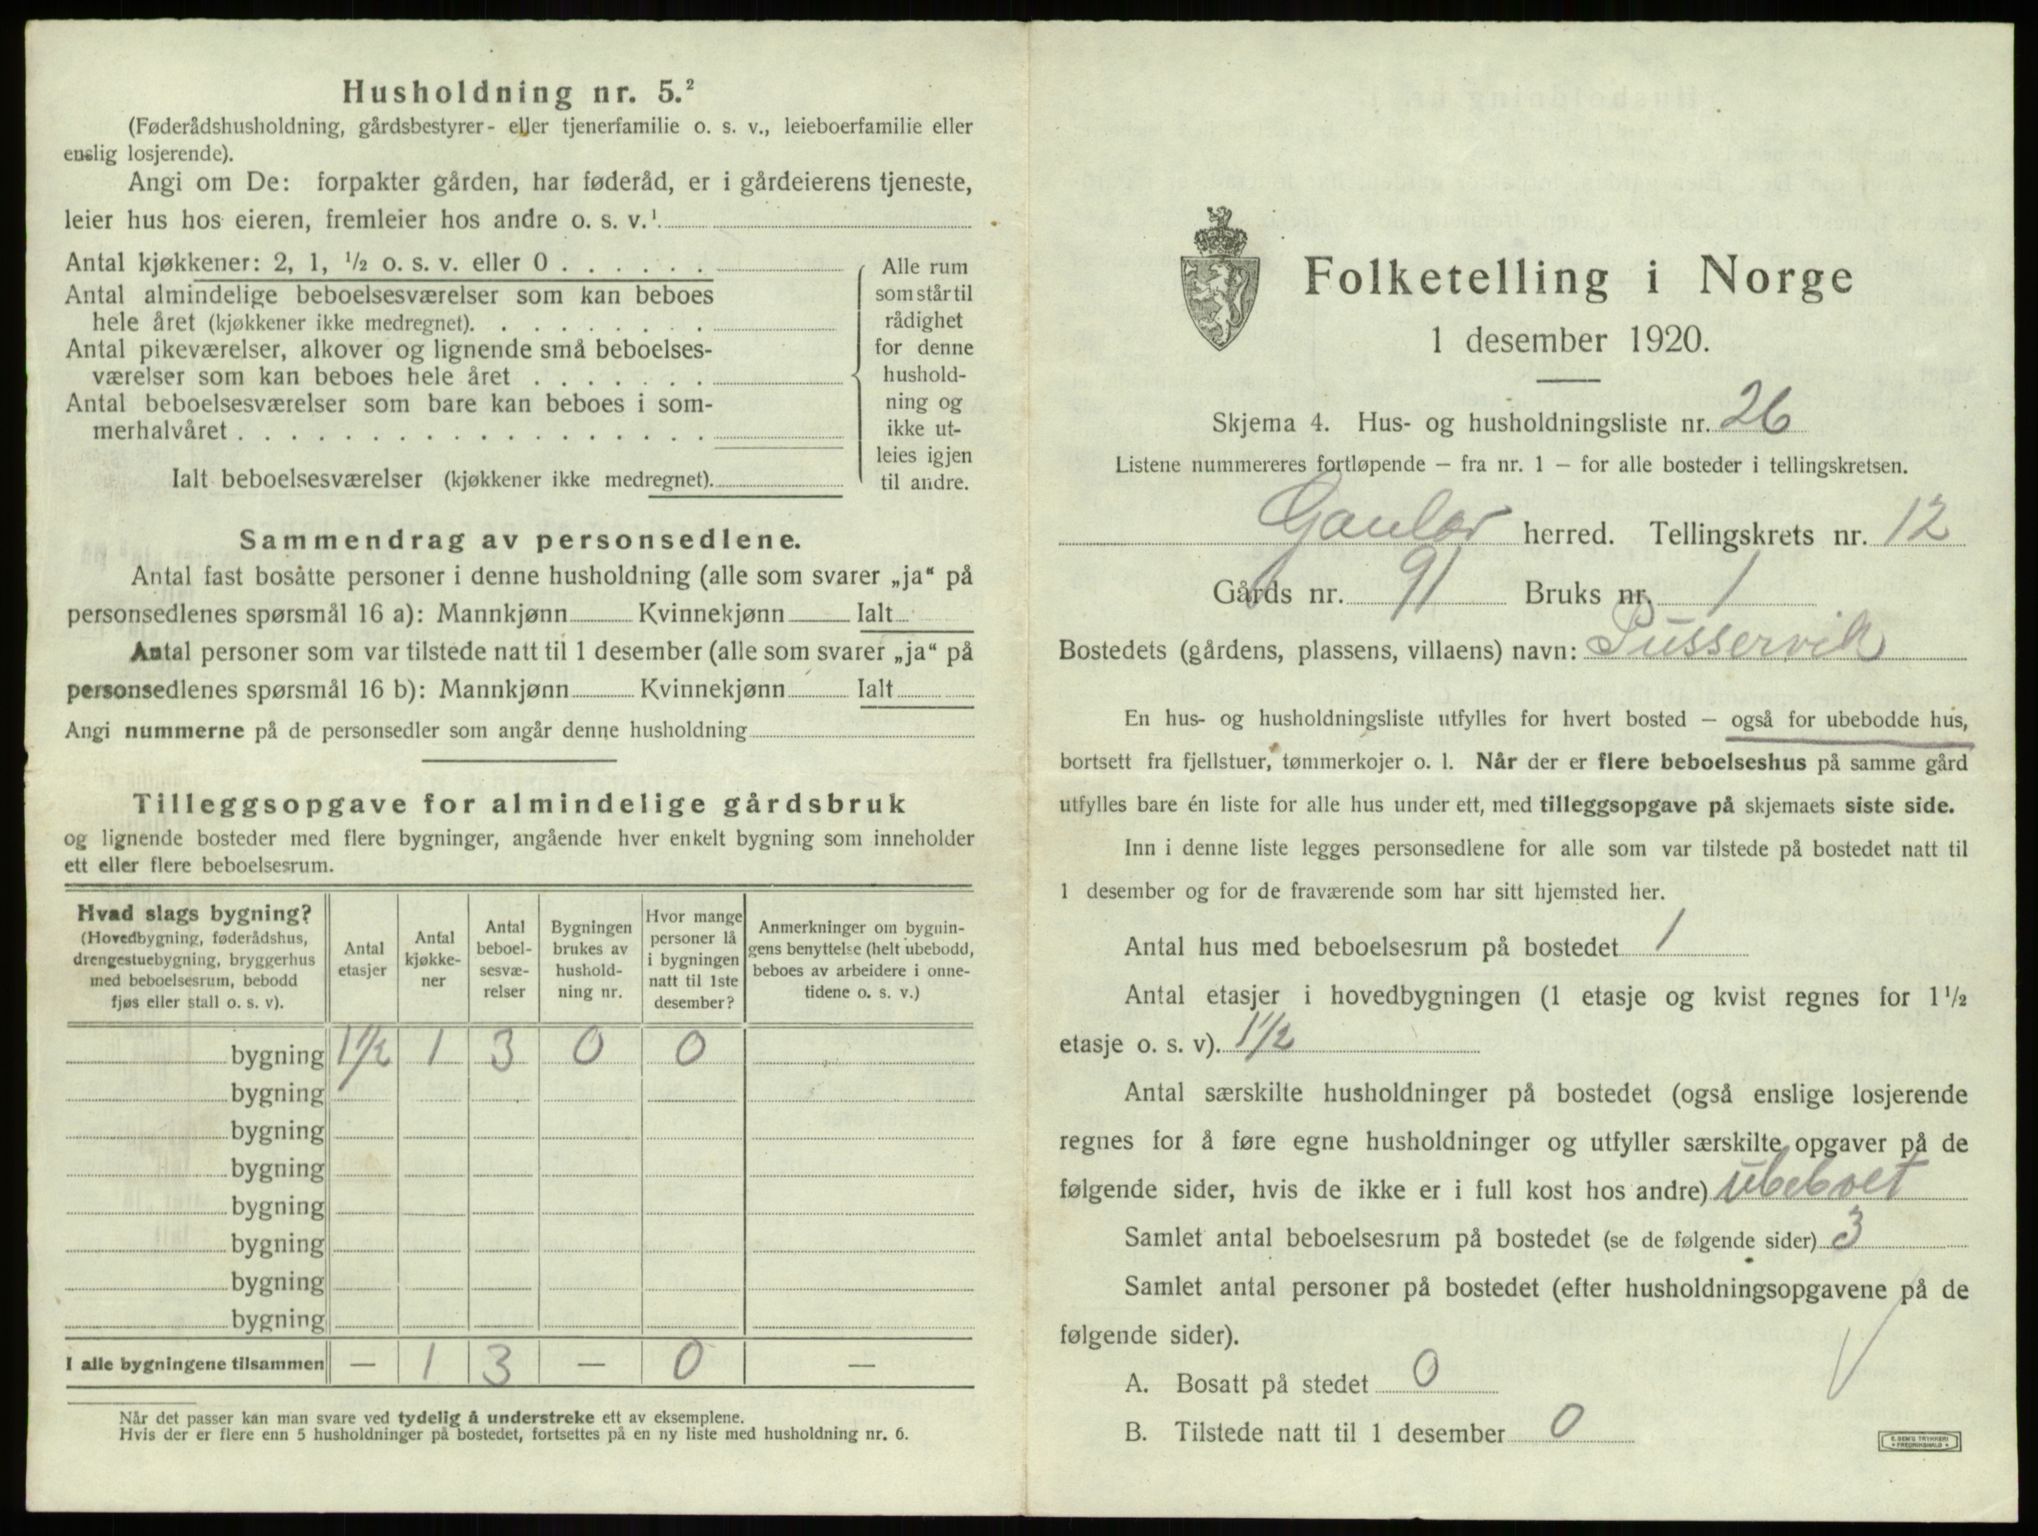 Husholdning nr. 5.²
(Føderådshusholdning, gårdsbestyrer- eller tjenerfamilie o. s. v., leieboerfamilie eller
enslig losjerende).
Angi om De: forpakter gården, har føderåd, er i gårdeierens tjeneste,
leier hus hos eieren, fremleier hos andre o. s. v.¹
Antal kjøkkener: 2, 1, ½ o. s. v. eller 0 . . . . . .
Antal almindelige beboelsesværelser som kan beboes
hele året (kjøkkener ikke medregnet). . . . . . . .
Antal pikeværelser, alkover og lignende små beboelses-
værelser som kan beboes hele året . . . . . . .
Antal beboelsesværelser som bare kan beboes i som-
merhalvåret . . . . . . . . . . . . . . . . . .
Ialt beboelsesværelser (kjøkkener ikke medregnet).
Alle rum
som står til
rådighet
for denne
hushold-
ning og
ikke ut-
leies igjen
til andre.
Sammendrag av personsedlene.
Antal fast bosatte personer i denne husholdning (alle som svarer „ja“ på
personsedlenes spørsmål 16 a): Mannkjønn Kvinnekjønn Ialt
Antal personer som var tilstede natt til 1 desember (alle som svarer „ja“ på
personsedlenes spørsmål 16 b): Mannkjønn Kvinnekjønn Ialt
Angi nummerne på de personsedler som angår denne husholdning
Tilleggsopgave for almindelige gårdsbruk
og lignende bosteder med flere bygninger, angående hver enkelt bygning som inneholder
ett eller flere beboelsesrum.
Hvad slags bygning?
(Hovedbygning, føderådshus,
drengestuebygning, bryggerhus
med beboelsesrum, bebodd
fjøs eller stall o. s. v).
Antal
etasjer
Antal
kjøkke-
ner
Antal
beboel-
sesvæ-
relser
Bygningen
brukes av
hushold-
ning nr.
Hvor mange
personer lå
i bygningen
natt til 1ste
desember?
Anmerkninger om bygnin-
gens benyttelse (helt ubebodd,
beboes av arbeidere i onne-
tidene o. s. v.)
bygning 1½ 1 3 0 0
bygning
bygning
bygning
bygning
bygning
bygning
bygning
I alle bygningene tilsammen — 1 3 — 0 —
Når det passer kan man svare ved tydelig å understreke ett av eksemplene.
Hvis der er flere enn 5 husholdninger på bostedet, fortsettes på en ny liste med husholdning nr. 6.
Folketelling i Norge
1 desember 1920.
Skjema 4. Hus- og husholdningsliste nr. 26
Listene nummereres fortløpende – fra nr. 1 – for alle bosteder i tellingskretsen.
Gaular herred. Tellingskrets nr. 12
Gårds nr. 91 Bruks nr. 1
Bostedets (gårdens, plassens, villaens) navn: Pusservik
En hus- og husholdningsliste utfylles for hvert bosted – også for ubebodde hus,
bortsett fra fjellstuer, tømmerkojer o. l. Når der er flere beboelseshus på samme gård
utfylles bare én liste for alle hus under ett, med tilleggsopgave på skjemaets siste side.
Inn i denne liste legges personsedlene for alle som var tilstede på bostedet natt til
1 desember og for de fraværende som har sitt hjemsted her.
Antal hus med beboelsesrum på bostedet 1
Antal etasjer i hovedbygningen (1 etasje og kvist regnes for 1½
etasje o. s. v). 1½
Antal særskilte husholdninger på bostedet (også enslige losjerende
regnes for å føre egne husholdninger og utfyller særskilte opgaver på de
følgende sider, hvis de ikke er i full kost hos andre) ubeboet
Samlet antal beboelsesrum på bostedet (se de følgende sider) 3
Samlet antal personer på bostedet (efter husholdningsopgavene på de
følgende sider).
A. Bosatt på stedet 0
B. Tilstede natt til 1 desember 0
E. SEM'S TRYKKERI
• FREDRIKSHALD •